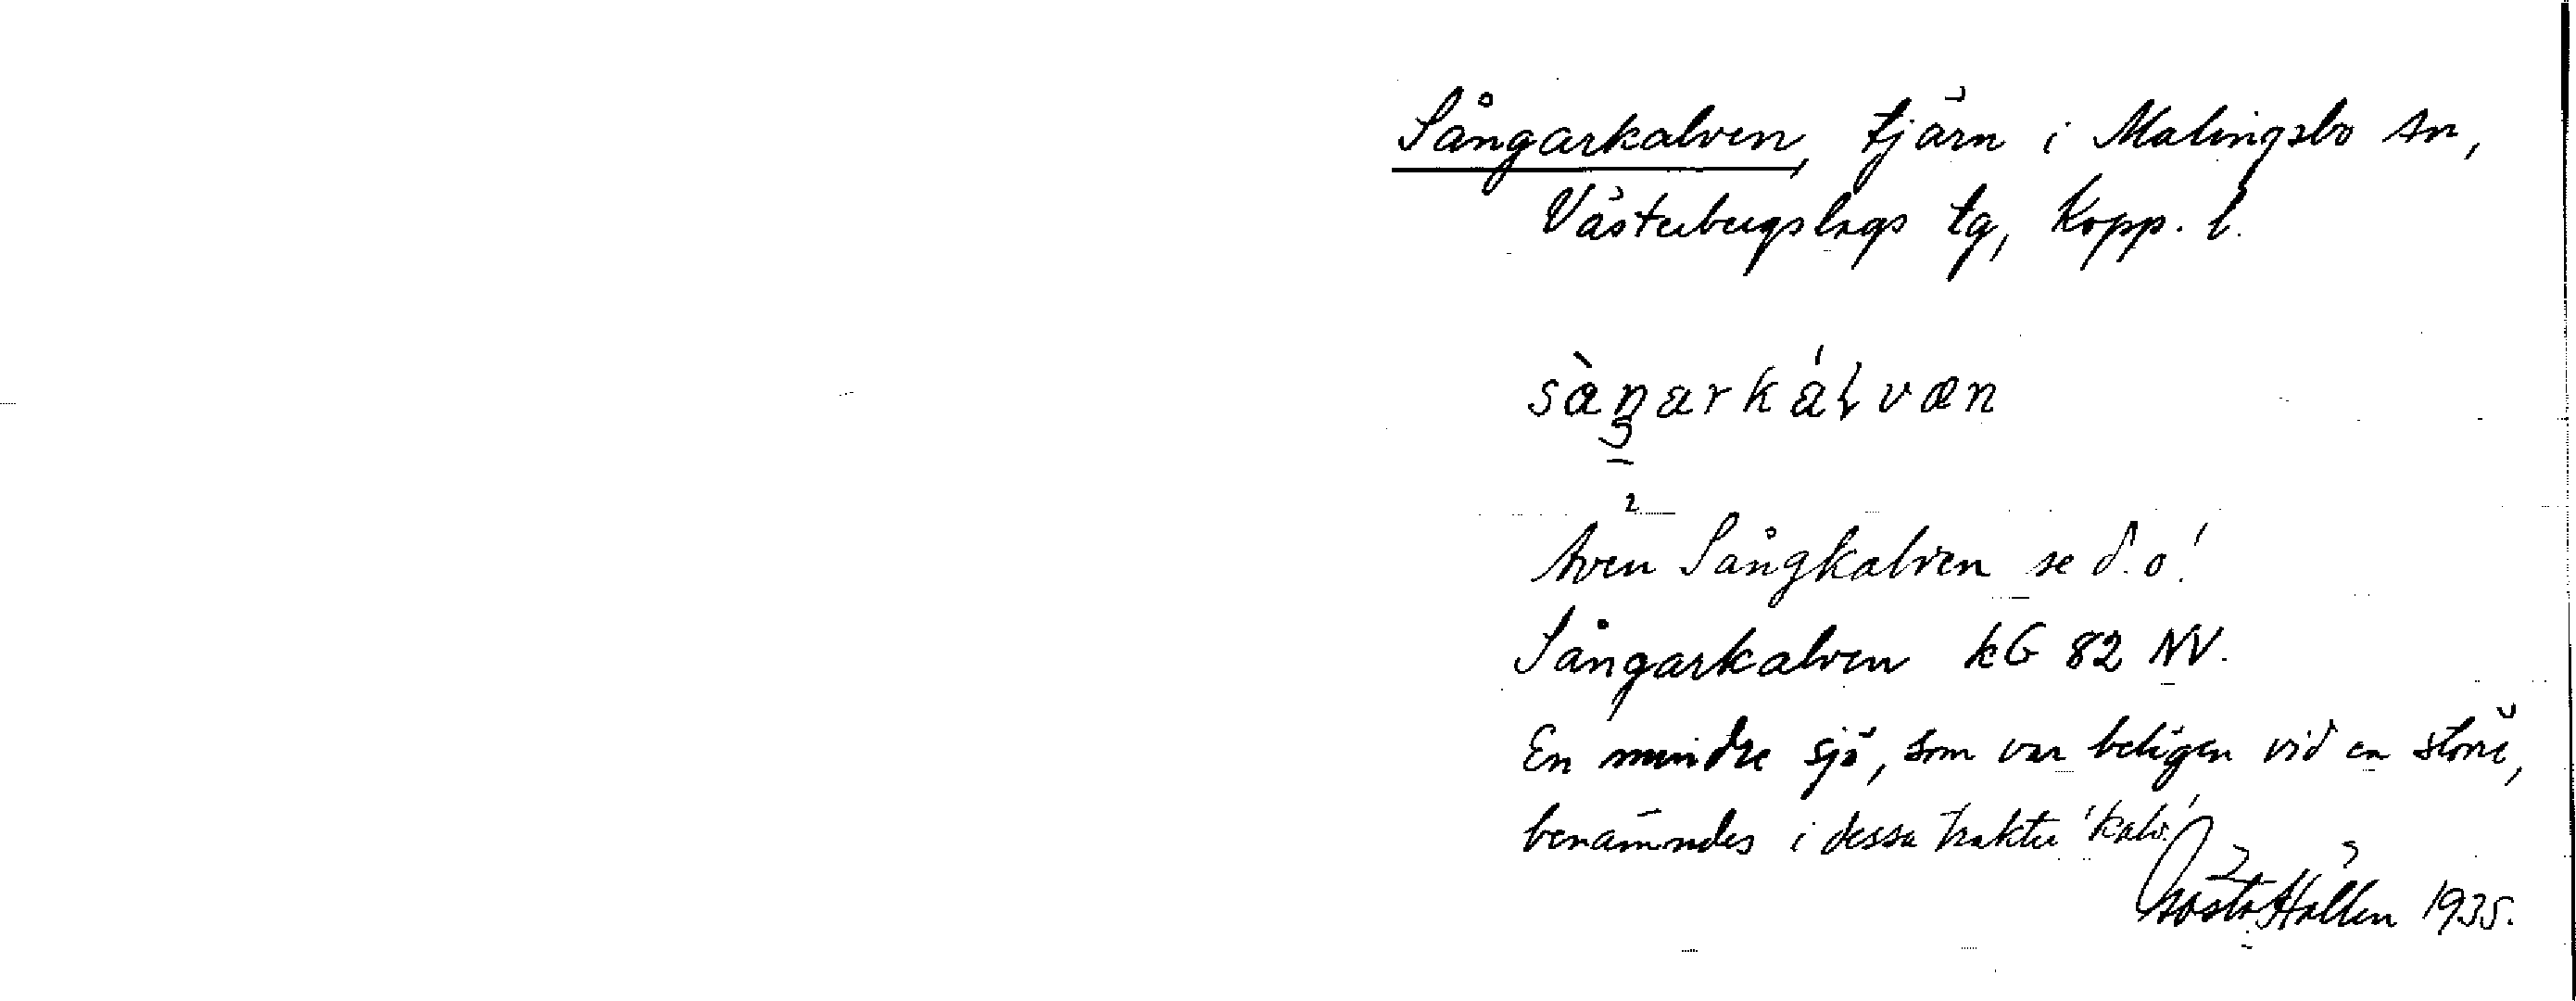 Sångarkalven, tjärn i Malingsbo sn,
Västerbergslags tg, Kopp. l.
sàŋarkálvæn
Även Sångkalven se d.o!
Sångarkalven kG 82 NV.
En mindre sjö, som var belägen vid en större,
benämndes i dessa trakter 'kalv'.
Gösta Hallén 1935.